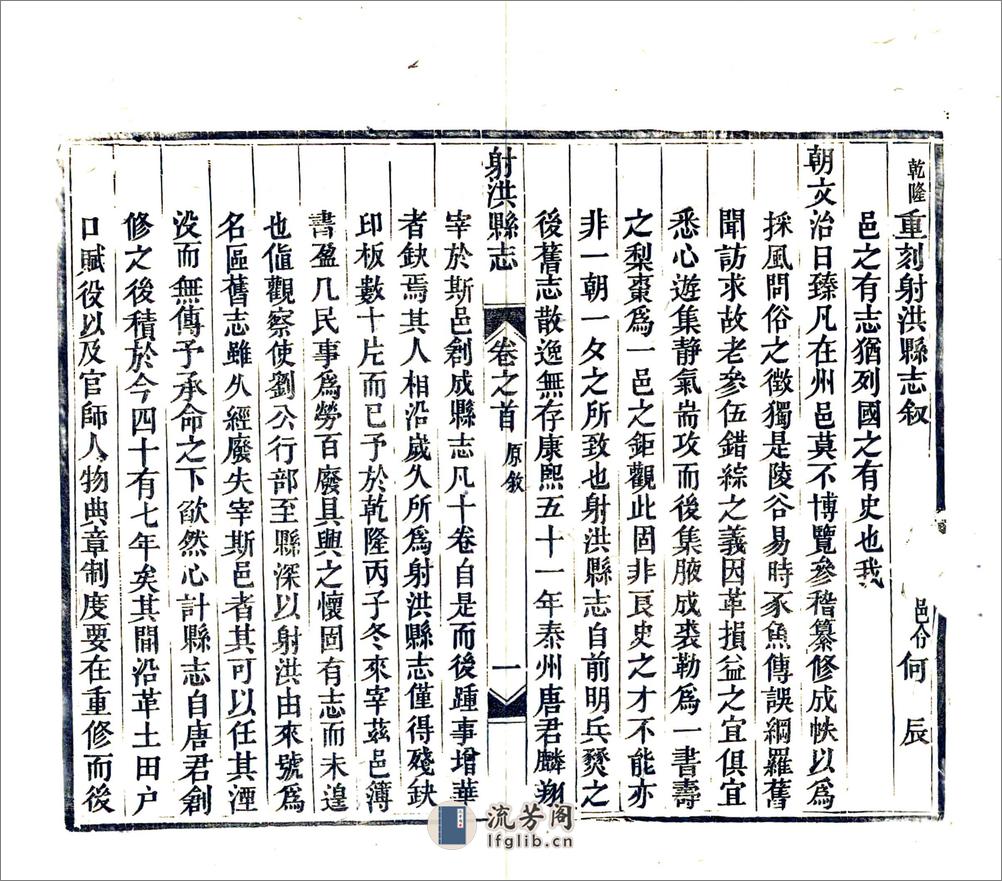 乾隆重刻射洪縣志叙 邑令何辰
邑之有志猶列國之有史也我
朝文治日臻凡在州邑莫不博覽參稽纂修成帙以為
採風問俗之徵獨是陵谷易時豕魚傳誤綱羅舊
聞訪求故老參伍錯綜之義因革損益之宜俱宜
悉心遊集静氣耑攻而後集腋成裘勒為一書壽
之梨棗為一邑之鉅觀此固非良史之才不能亦
非一朝一夕之所致也射洪縣志自前明兵燹之
後舊志散逸無存康熙五十一年泰州唐君麟翔
射洪縣志 卷之首 原敘 一
宰於斯邑創成縣志凡十卷自是而後踵事增華
者缺焉其人相沿歲久所為射洪縣志僅得殘缺
印板數十片而已予於乾隆丙子冬來宰茲邑簿
書盈几民事為勞百廢具興之懷固有志而未遑
也值觀察使劉公行部至縣深以射洪由來號為
名區舊志雖久經廢失宰斯邑者其可以任其湮
没而無傳予承命之下欿然心計縣志自唐君創
修之後積於今四十有七年矣其間沿革土田户
口賦役以及官師人物典章制度要在重修而後
流芳阁
lfglib.cn